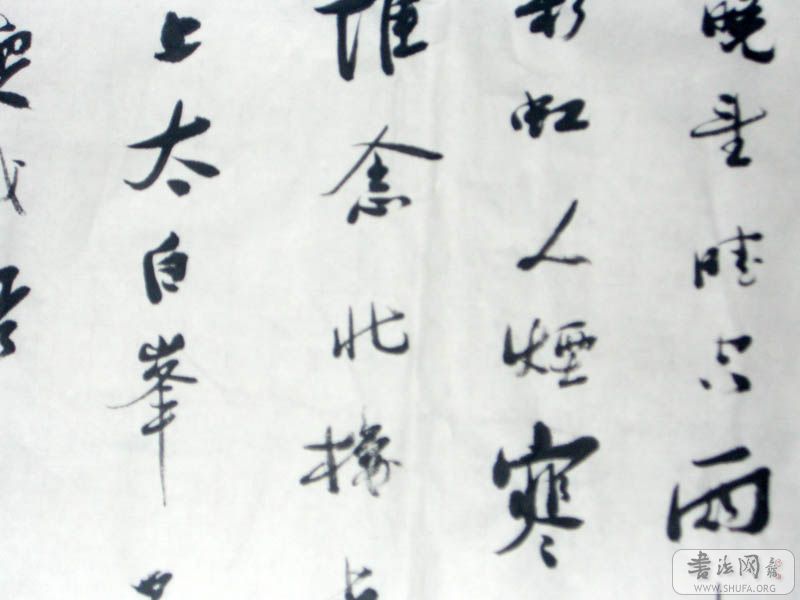 晚望晴空兩
彩虹人煙寒
誰念北樓上
上太白峯
書法网
WWW.SHUFA.ORG